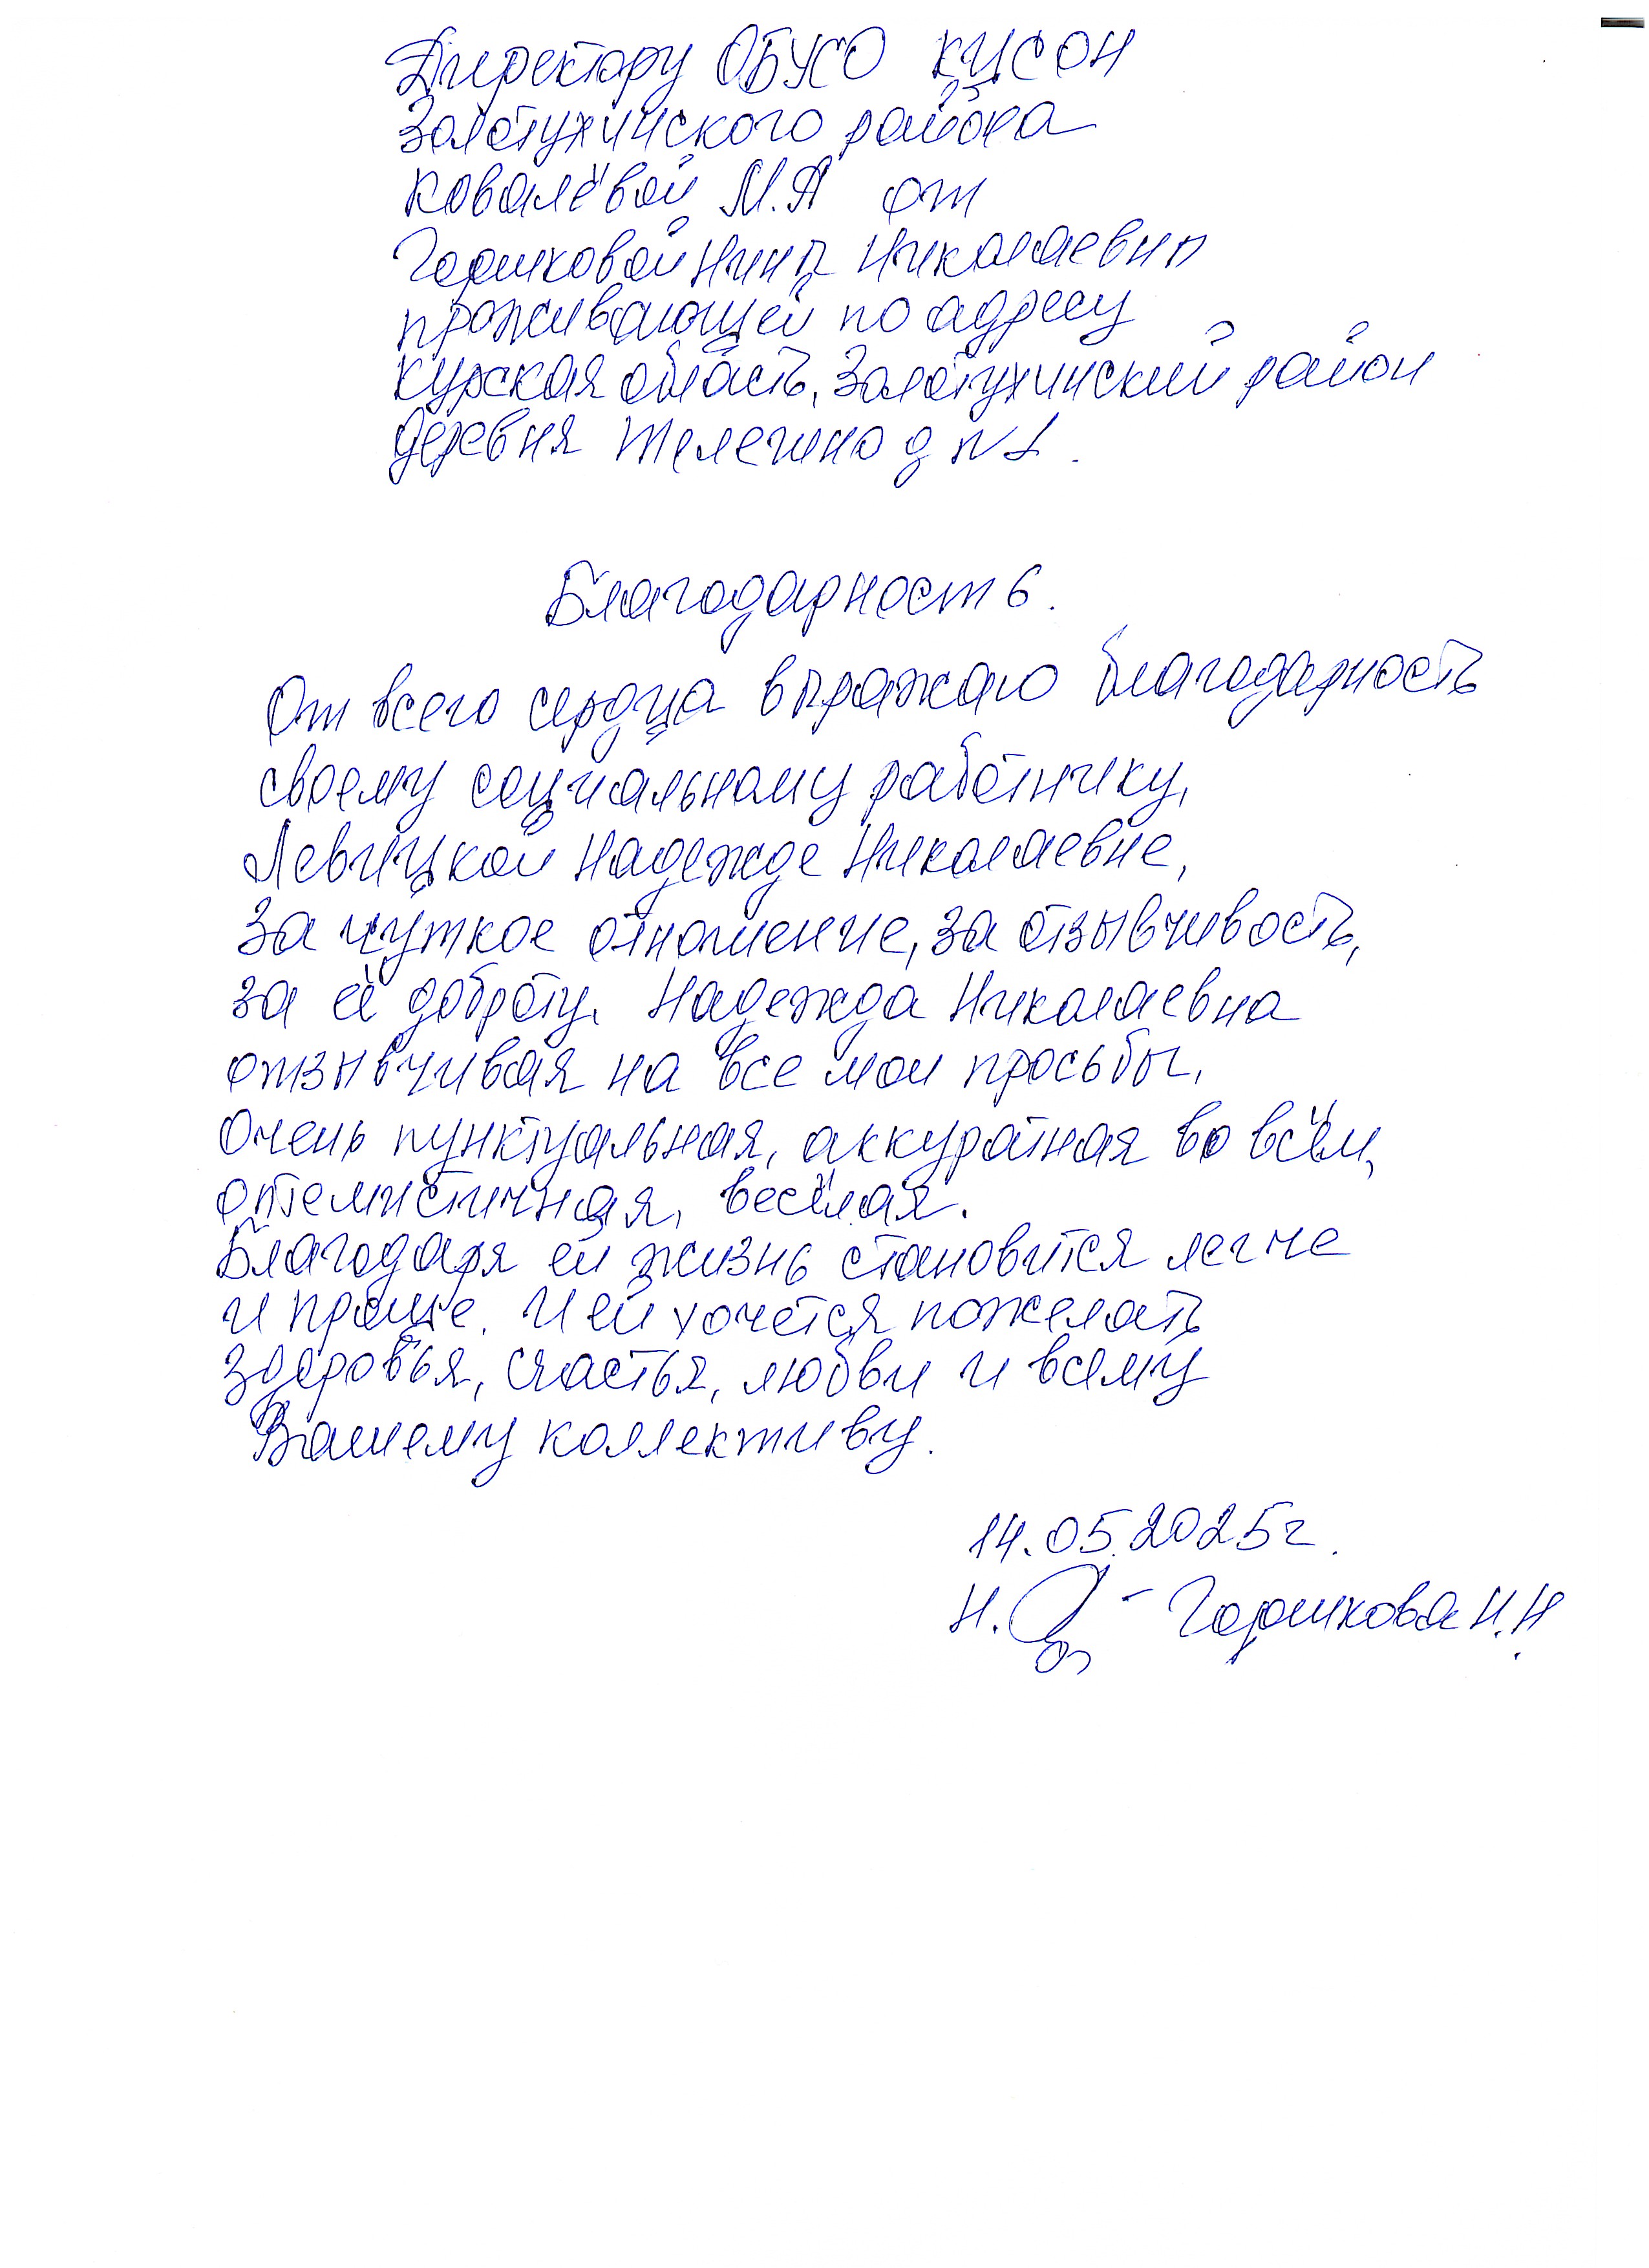 Директору ОБУСО КЦСОН
Золотухинского района
Ковалёвой М.А от
Горшковой Нины Николаевны
проживающей по адресу
Курская область, Золотухинский район
деревня Жилегино д №1.
Благодарность.
От всего сердца выражаю благодарность
своему социальному работнику,
Левицкой Надежде Николаевне,
За чуткое отношение, за отзывчивость,
за её доброту. Надежда Николаевна
отзывчивая на все мои просьбы,
Очень пунктуальная, аккуратная во всём,
оптемистичная, весёлая.
Благодаря ей жизнь становится легче
и проще. И ей хочется пожелать
здоровья, счастья, любви и всему
Вашему коллективу.
14.05.2025г.
Н. Горшкова Н.Н